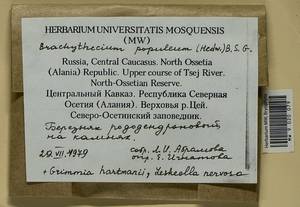 HERBARIUM UNIVERSITATIS MOSQUENSIS
(MW)
Brachythecium populeum (Hedw.) B.S.G.
Russia, Central Caucasus. North Ossetia
(Alania) Republic. Upper course of Tsej River.
North-Ossetian Reserve.
Центральный Кавказ. Республика Северная
Осетия (Алания). Верховья р.Цей.
Северо-Осетинский заповедник.
Березняк рододендроновый,
на камнях.
29.VII.1979
собр. Л.И. Абрамова
опр. Е. Игнатова
+ Grimmia hartmanii, Leskeella nervosa